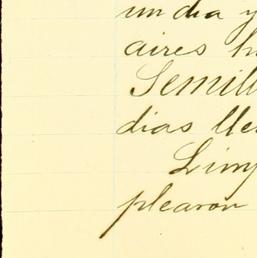 un dia y
aires h
Semill
dias lle
Limp
plearon